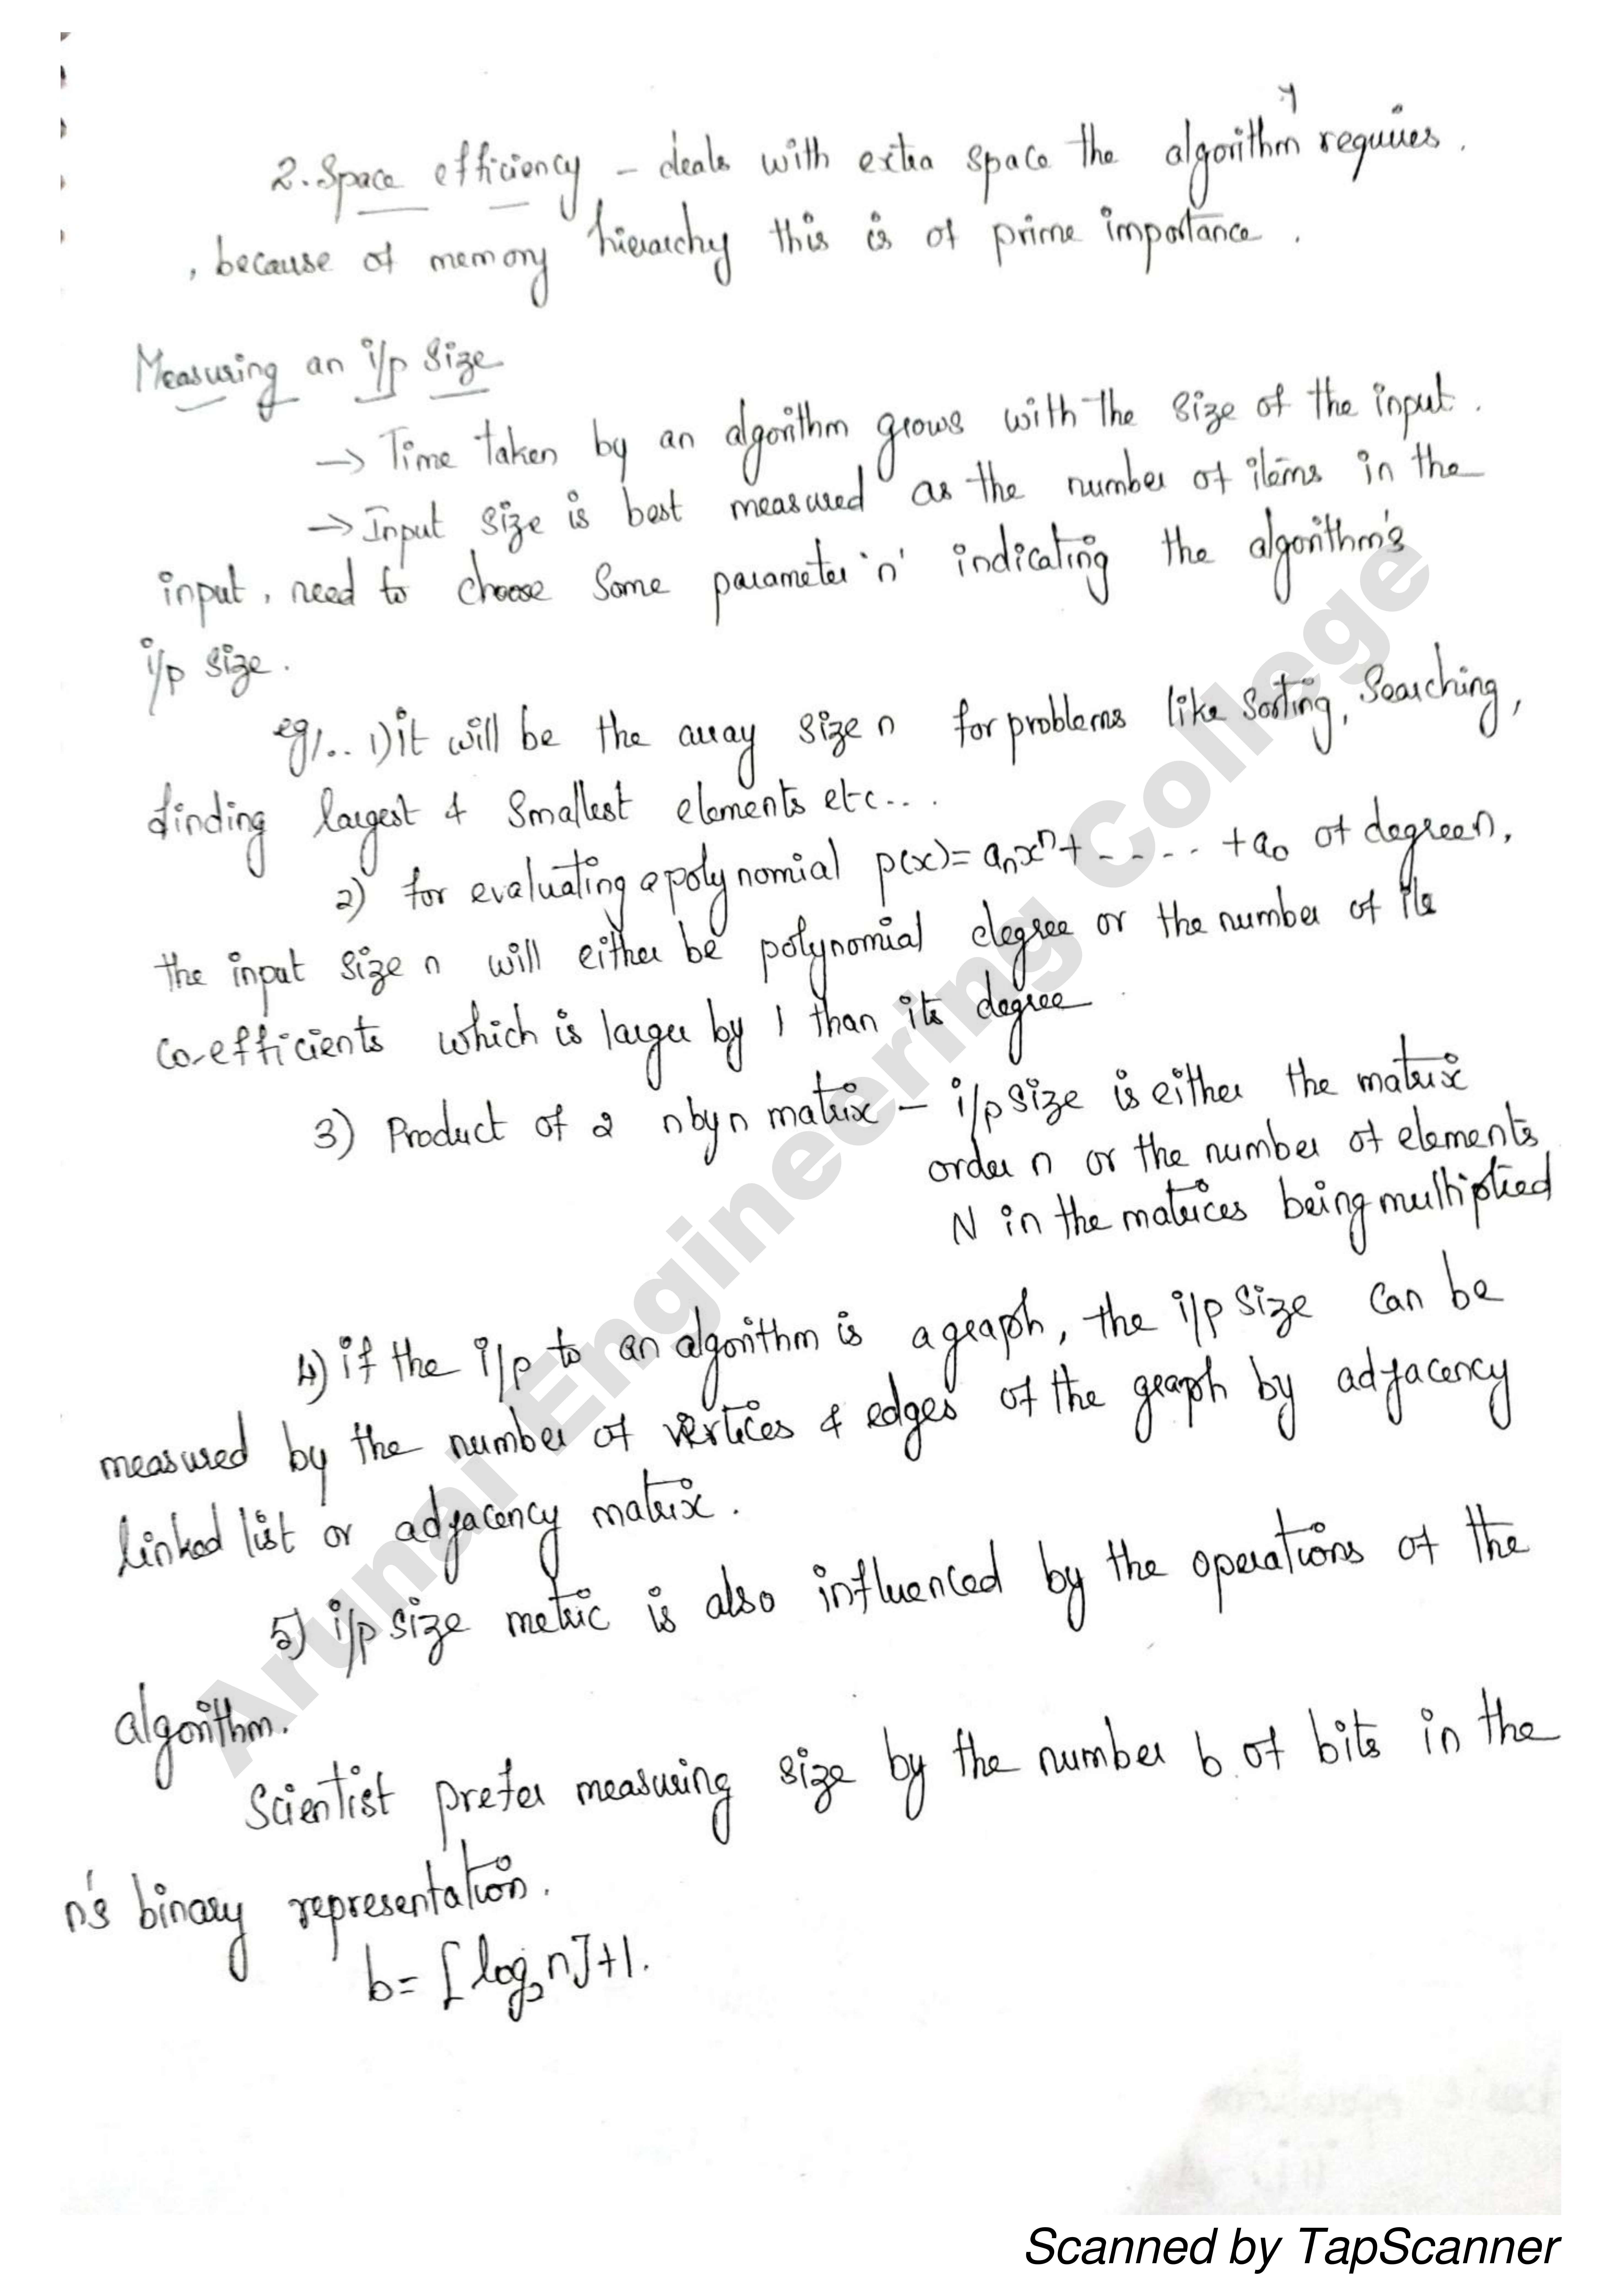 2. Space efficiency - deals with extra space the algorithm requires.
, because of memory hierarchy this is of prime importance.
Measuring an i/p size
→ Time taken by an algorithm grows with the size of the input.
→ Input size is best measured as the number of items in the
input, need to choose some parameter 'n' indicating the algorithm's
i/p size.
eg/.. 1) it will be the array size n for problems like Sorting, Searching,
finding largest & Smallest elements etc...
2) for evaluating a polynomial p(x)= aₙxⁿ+ - - - - +a₀ of degree n,
the input size n will either be polynomial degree or the number of its
co-efficients which is larger by 1 than its degree
3) Product of 2 n by n matrix - i/p size is either the matrix
order n or the number of elements
N in the matrices being multiplied
4) if the i/p to an algorithm is a graph, the i/p size can be
measured by the number of vertices & edges of the graph by adjacency
linked list or adjacency matrix.
5) i/p size metric is also influenced by the operations of the
algorithm.
Scientist prefer measuring size by the number b of bits in the
n's binary representation.
b= ⌊log₂n⌋+1.
Arunai Engineering College
Scanned by TapScanner